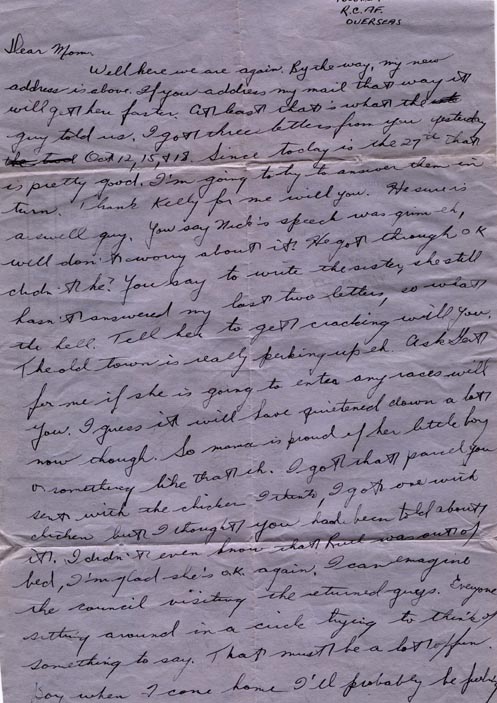 R.C.A.F.
OVERSEAS
Dear Mom.
Well here we are again. By the way, my new
address is above. If you address my mail that way it
will get here faster. At least that's what the
guy told us. I got three letters from you yesterday
Oct 12, 15, & 18. Since today is the 27th that
is pretty good. I'm going to try to answer them in
turn. Thank Kelly for me will you. He sure is
a swell guy. You say Nick's speech was grim eh,
well don't worry about it. He got through OK
didn't he? You say to write the sister, she still
hasn't answered my last two letters, so what
the hell. Tell her to get cracking will you.
The old town is really perking up eh. Ask
for me if she is going to enter any races will
you. I guess it will have quietened down a lot
now though. So mama is proud of her little boy
or something like that eh. I got that parcel you
sent with the chicken I think, I got one with
chicken but I thought you had been told about
it. I didn't even know that Ruth was out of
bed, I'm glad she's o.k. again. I can emagine
the council visiting the returned guys. Everyone
sitting around in a circle trying to think of
something to say. That must be a lot of fun.
Boy when I come home I'll probably be